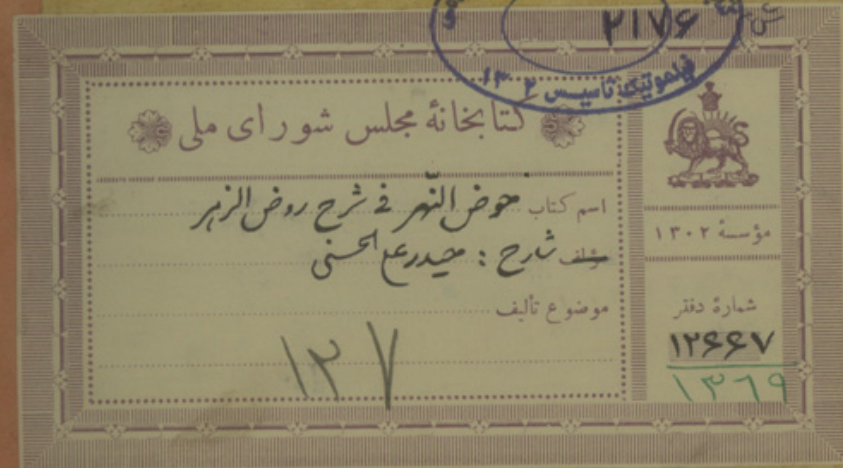 ۲۱۷۶
تأسیس ۱۳۰۲
کتابخانهٔ مجلس شورای ملی
اسم کتاب حوض النهر فی شرح روض الزهر
مؤلف شارح : حیدر علی الحسنی
موضوع تألیف
۱۲۷
مؤسسهٔ ۱۳۰۲
شمارهٔ دفتر
۱۲۶۶۷
۱۳۶۹